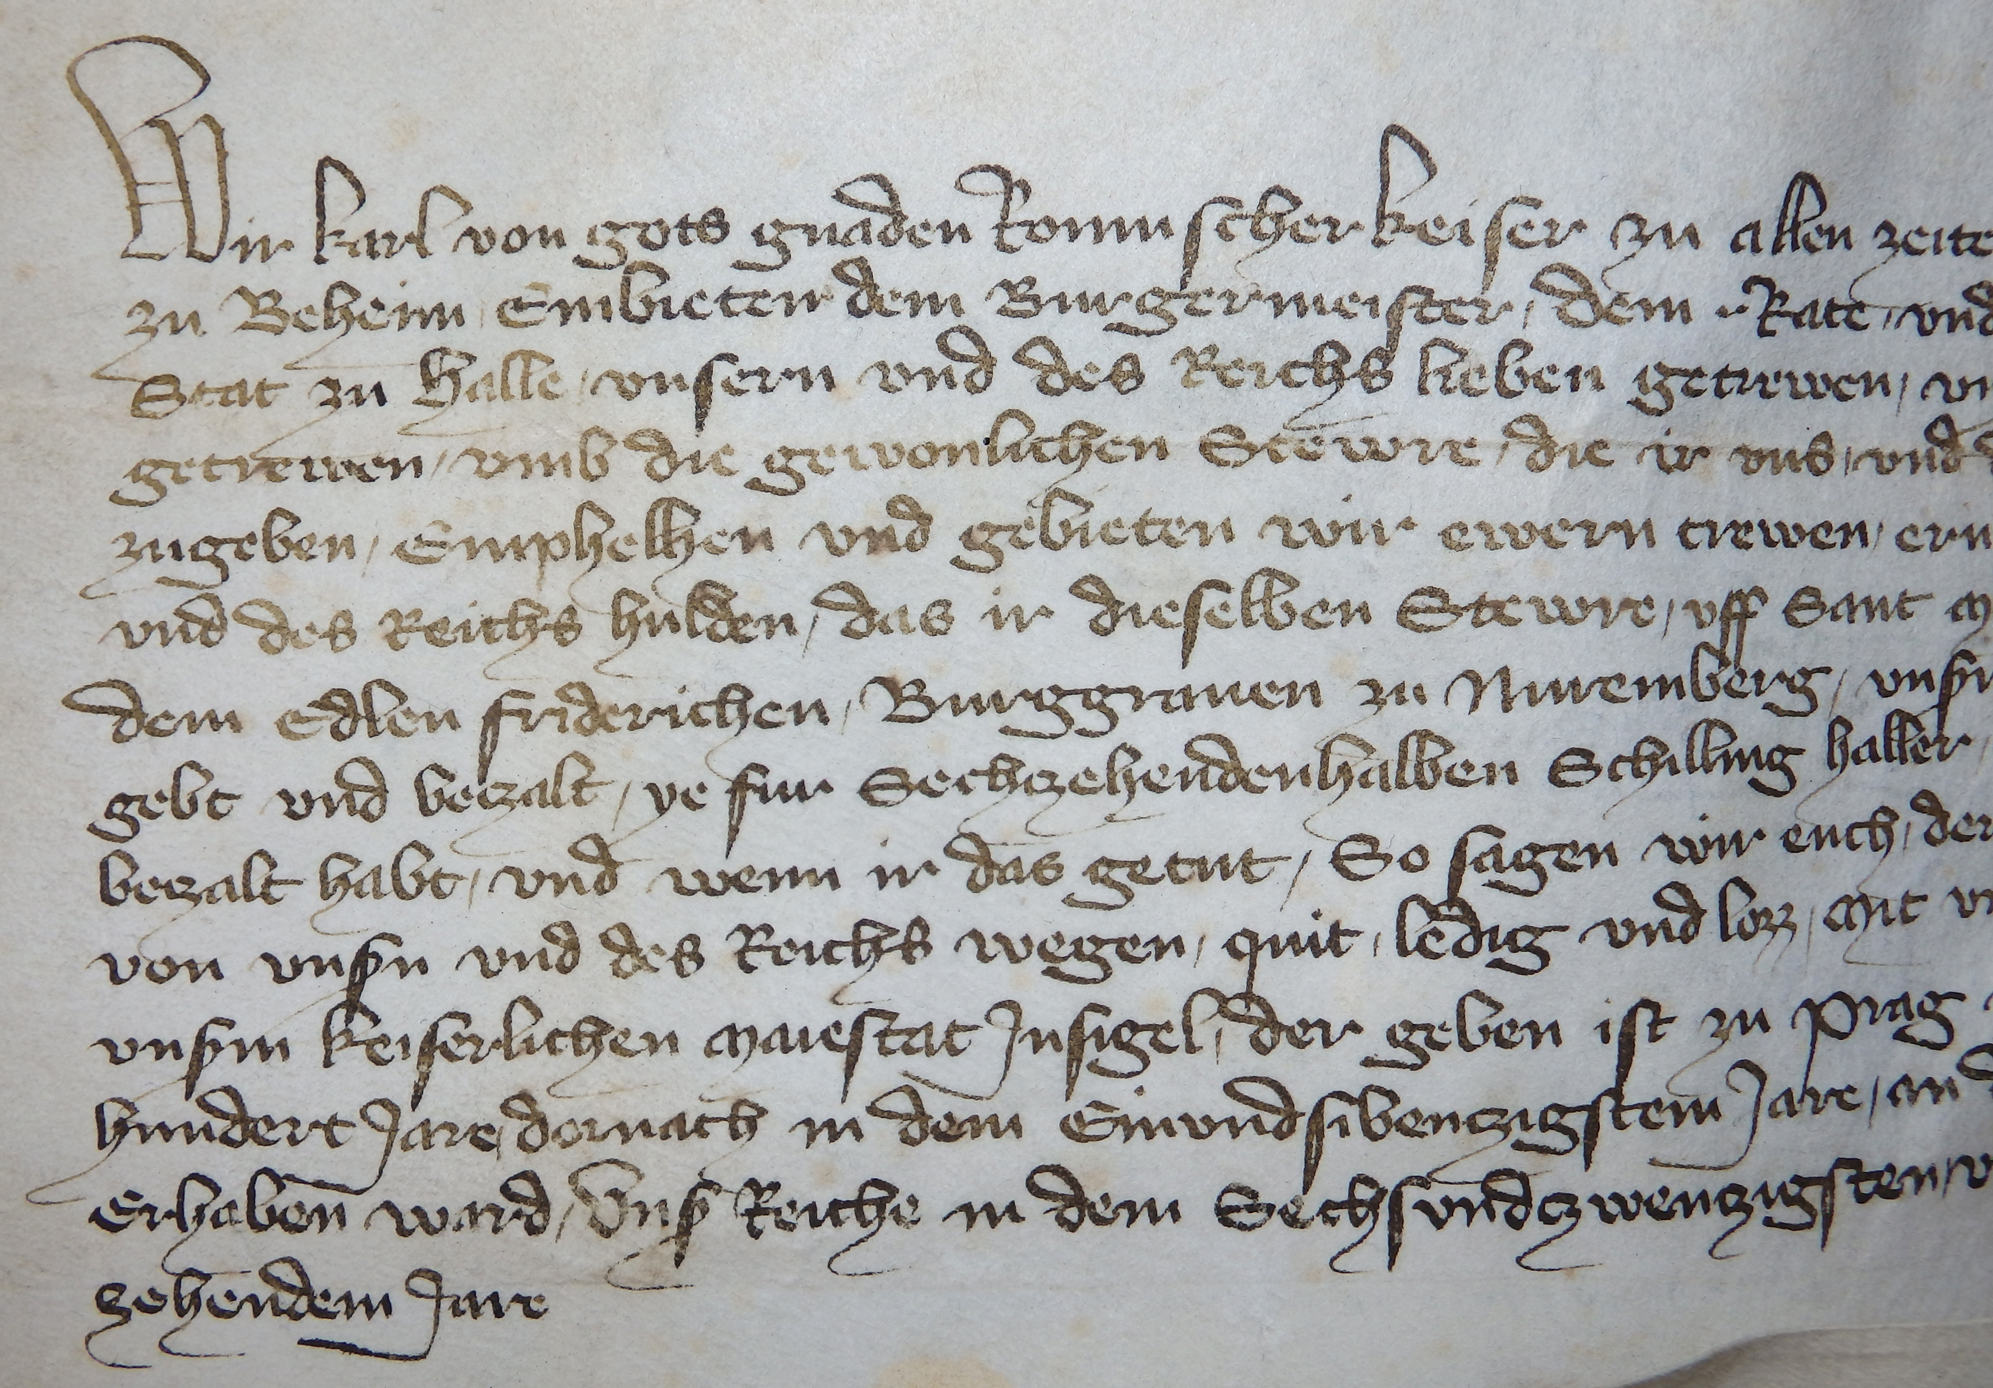 Wir karl von gots gnaden Romischer keiser zu allen zeite
zu Beheim Embieten dem Burgermeister / dem Rate / vnd
Stat zu Halle / vnsern vnd des Reichs lieben getrewen /
getrewen / vmb die gewonlichen Stewre / die ir vns / vnd
zugeben / Emphelhen vnd gebieten wir ewern trewen /
vnd des Reichs hulden / das ir dieselben Stewre / vff Sant
dem Edlen friderichen / Burggrauen zu Nuremberg /
gebt vnd betzalt / ye fur Sechtzehendenhalben Schilling haller /
betzalt habt / vnd wenn ir das getut / So sagen wir euch / der
von vnsn vnd des Reichs wegen / quit / ledig vnd loz / Mit
vnsm keiserlichen Maiestat Insigel / der geben ist zu Prag
hundert Jare / dornach in dem Einvndsibenczigstem Jare / an
Erhaben ward / Vnsr Reiche in dem Sechsvndczwenczigsten /
zehendem Jare